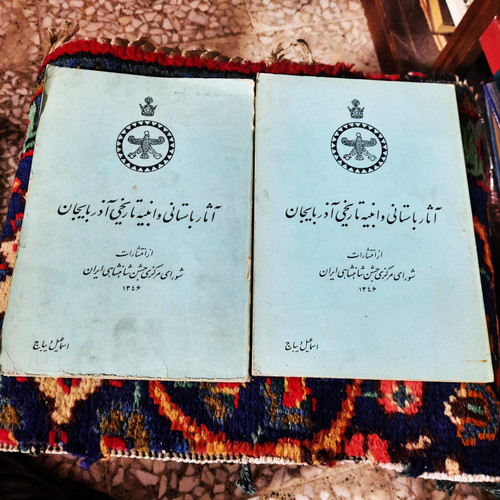 آثار باستانی و ابنیه تاریخی آذربایجان
از انتشارات
شورای مرکزی جشن شاهنشاهی ایران
۱۳۴۶
اسماعیل دیباج
آثار باستانی و ابنیه تاریخی آذربایجان
از انتشارات
شورای مرکزی جشن شاهنشاهی ایران
۱۳۴۶
اسماعیل دیباج